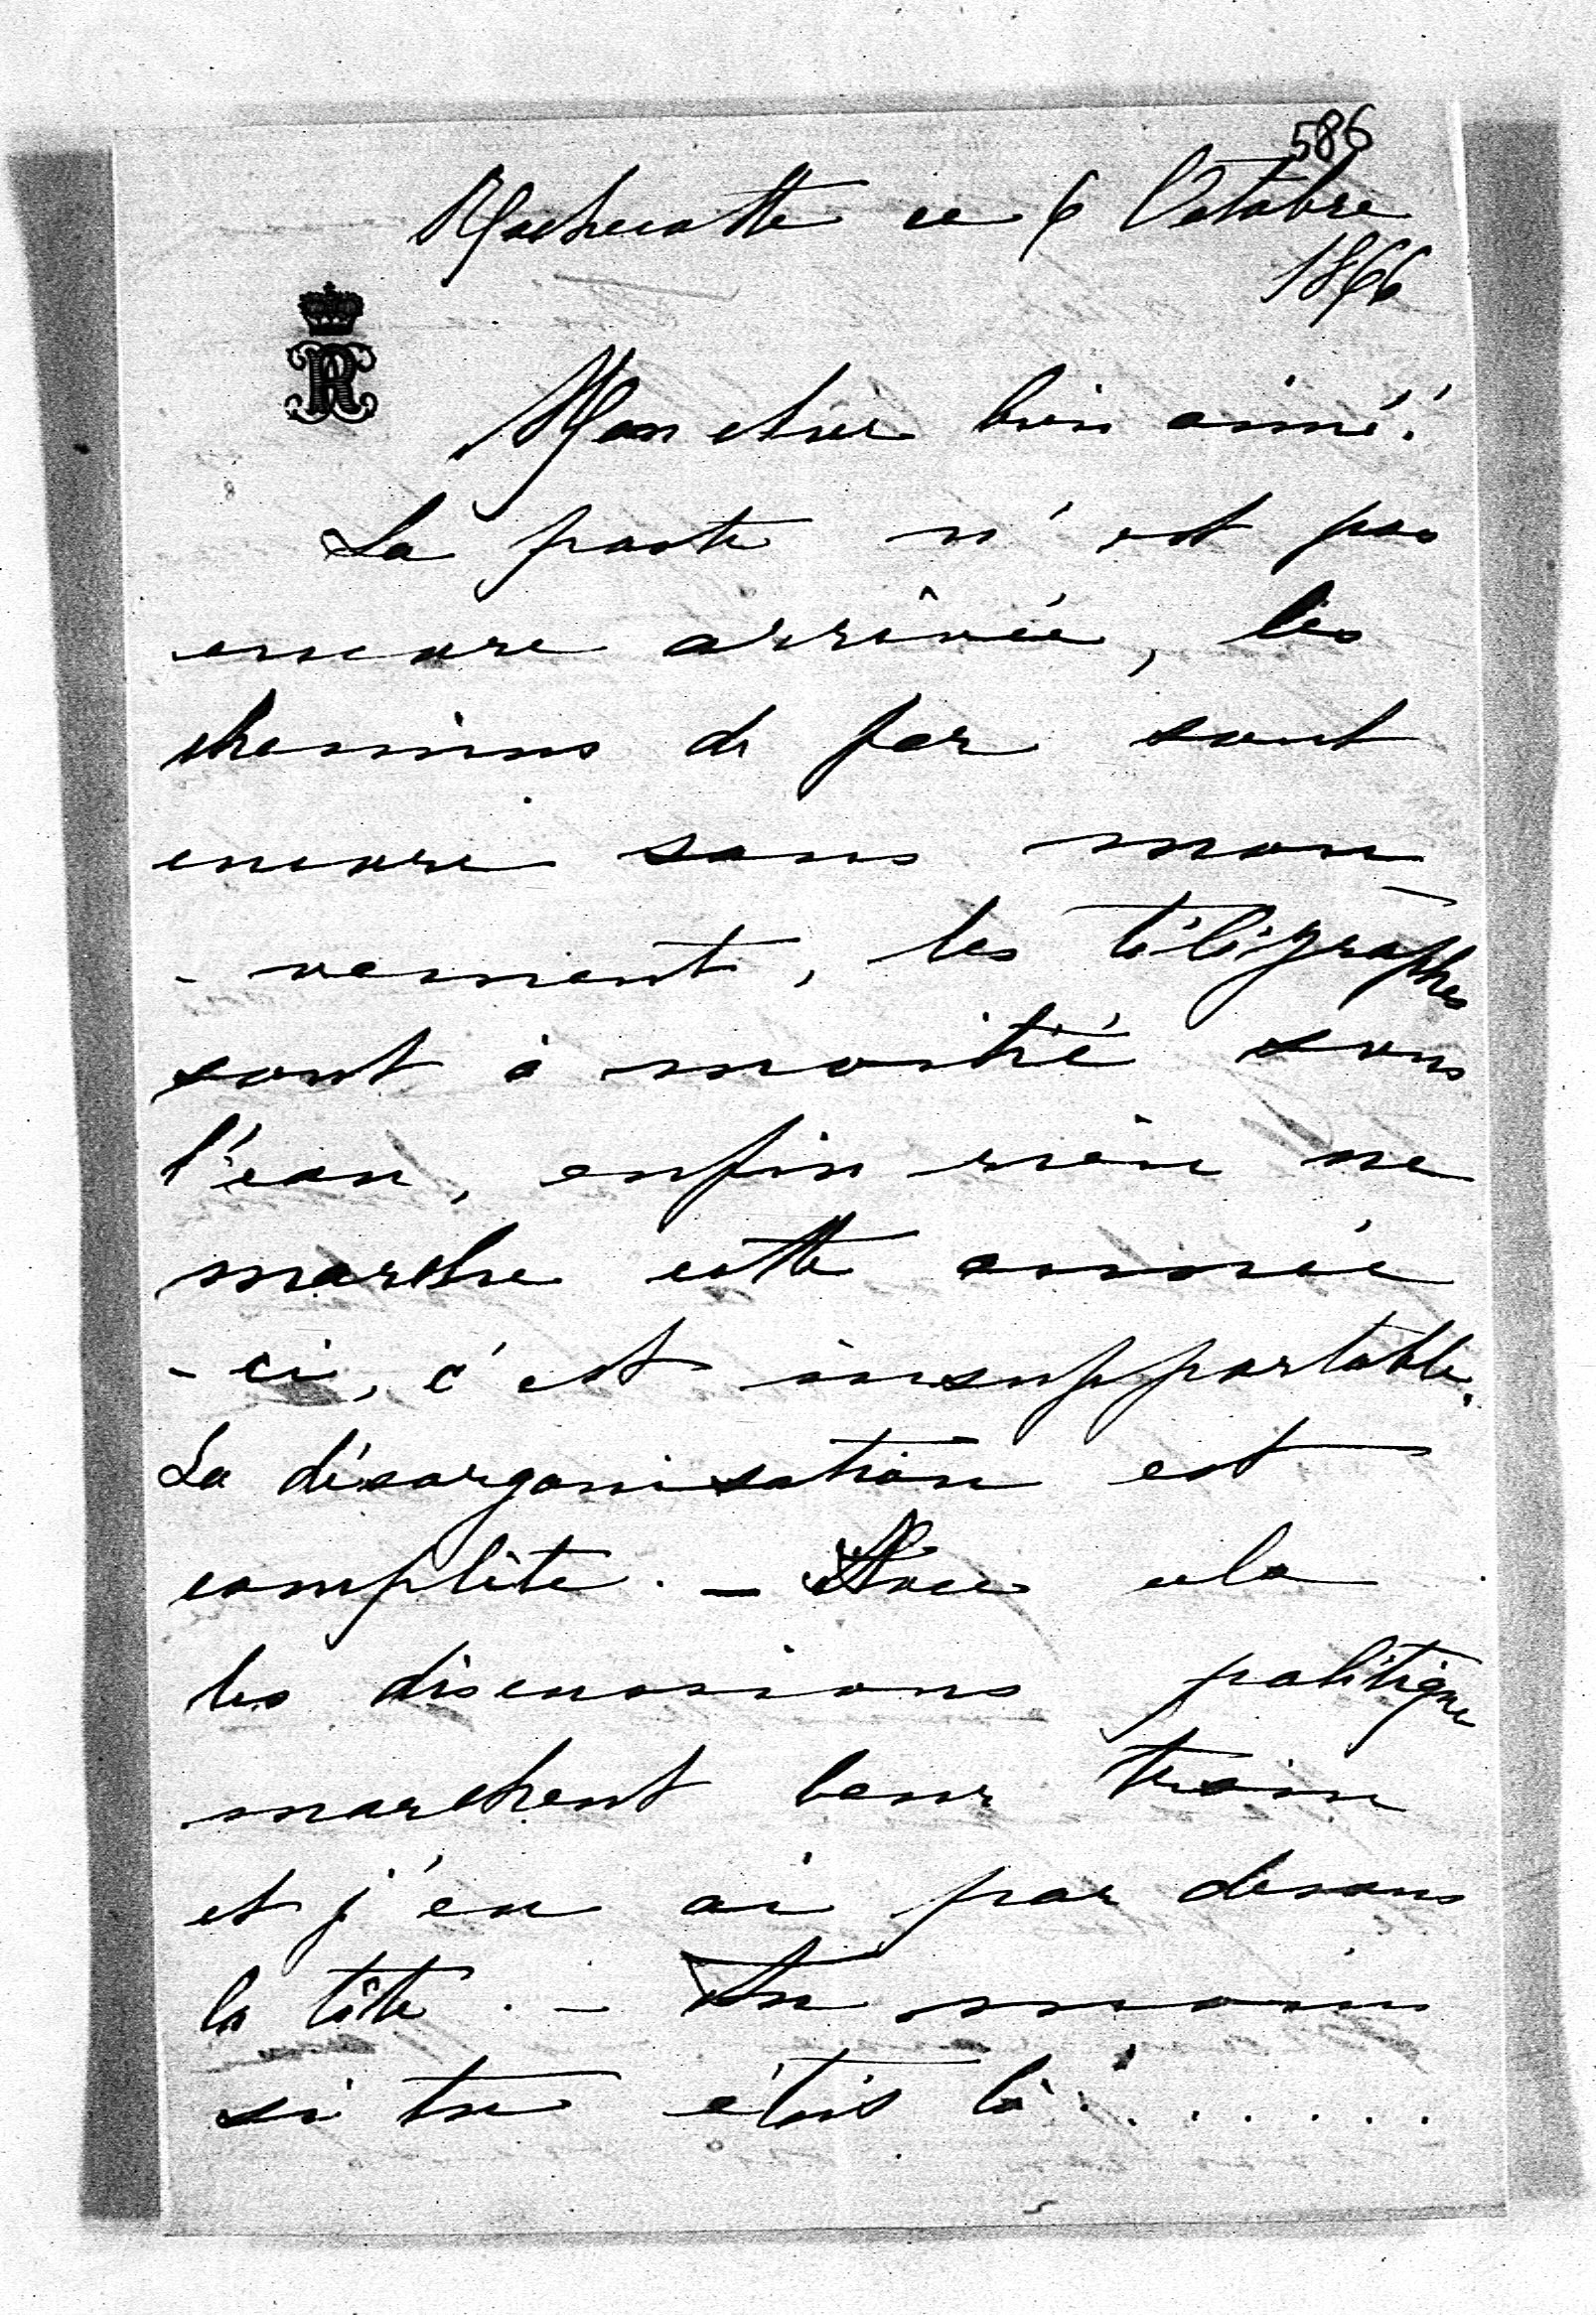 586
Rochecotte ce 6 Octobre
1866
R
Mon cher bien aimé!
La poste n'est pas
encore arrivée, les
chemins de fer sont
encore sans mou-
-vement, les télégraphes
sont à moitié sous
l'eau, enfin rien ne
marche cette année
-ci, c'est insupportable.
La désorganisation est
complète. - Avec cela
les discussions politique
marchent leur train
et j'en ai par dessus
la tête. - Au moins
si tu étais là! . . . . . .